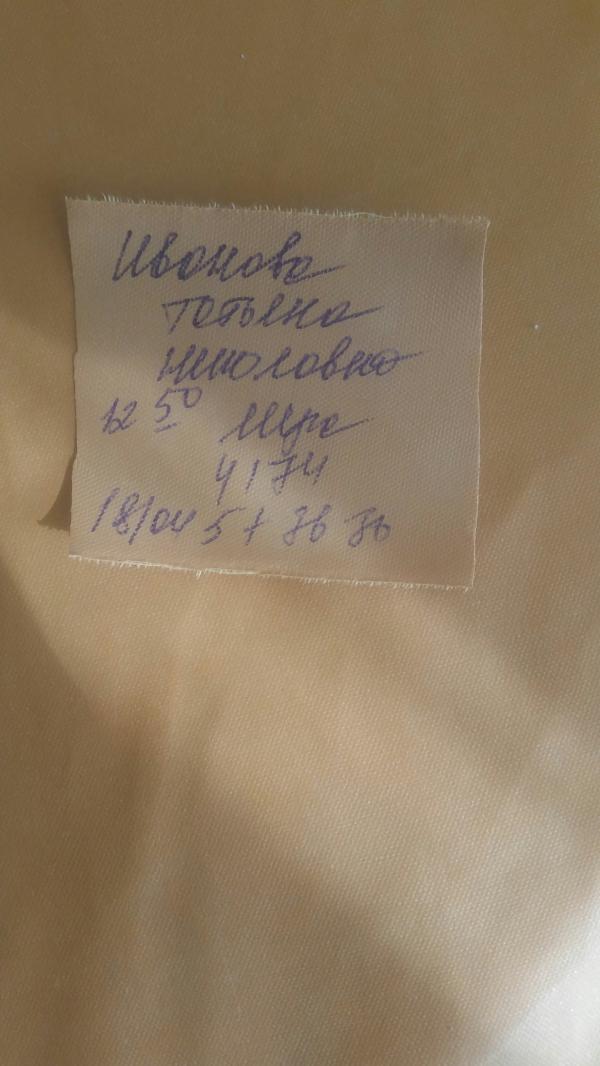 Иванова
Татьяна
Николовна
12 50 Шра
4174
18/04 57 36 36